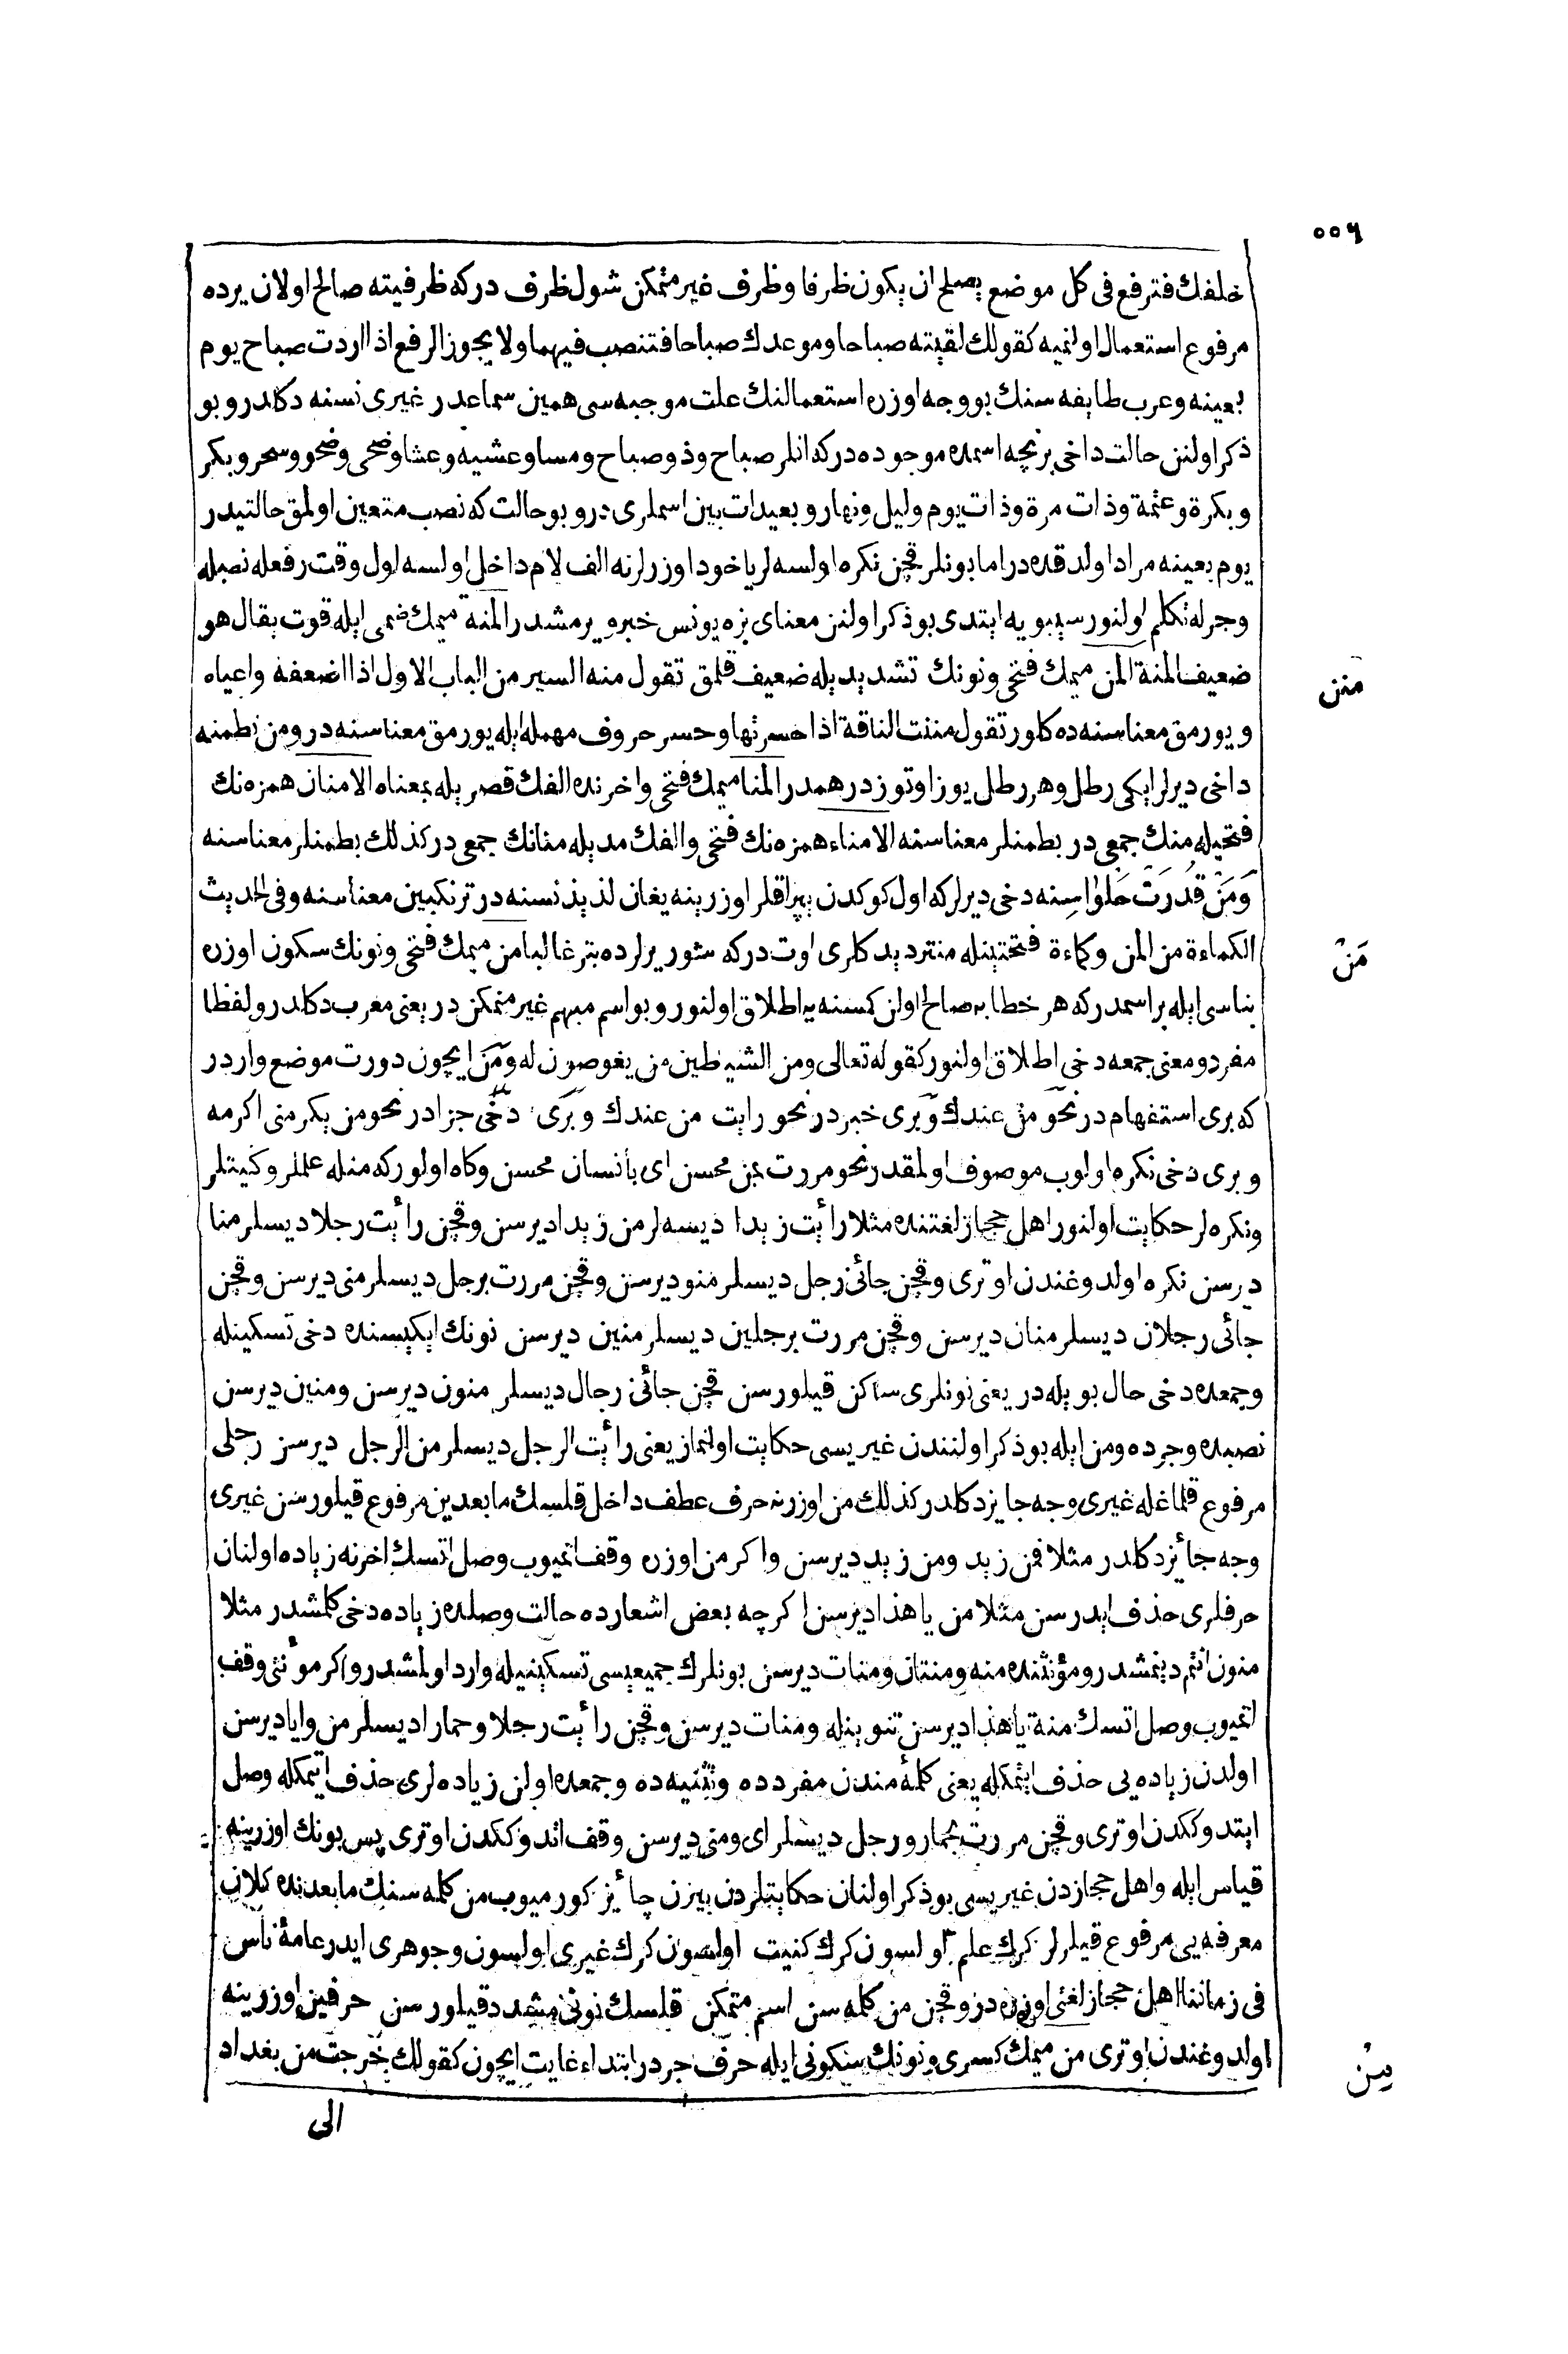 ٥٥٦
خلفك فترفع فى كل موضع يصلح ان يكون ظرفا وظرف غير متمكن شول ظرف دركه ظرفيته صالح اولان يرده
مرفوع استعمال اولنميه كقولك لقيته صباحا وموعدك صباحا فتنصب فيهما ولا يجوز الرفع اذا اردت صباح يوم
بعينه وعرب طايفه سنك بو وجه اوزره استعمالنك علت موجبه سى همين سماعدر غيرى نسنه دكلدر وبو
ذكر اولنن حالت داخى برنچه اسمده موجوده دركه انلر صباح وذو صباح ومسا وعشيه وعشا وضحى وضحو وسحر وبكر
وبكرة وعتمة وذات مرة وذات يوم وليل ونهار وبعيدات بين اسملرى در وبو حالت كه نصب متعين اولمق حالتيدر
يوم بعينه مراد اولدقده در اما بونلر قچن نكره اولسه لر ياخود اوزرلرنه الف لام داخل اولسه اول وقت رفعله نصبله
وجرله تكلم اولنور سيبويه ايتدى بو ذكر اولنن معناى بزه يونس خبر ويرمشدر المنه ميمك ضمى ايله قوت يقال هو
ضعيف المنة المن ميمك فتحى ونونك تشديديله ضعيف قلمق تقول منه السير من الباب الاول اذا اضعفه واعياه
ويورمق معناسنه ده كلور تقول مننت الناقة اذا حسرتها وحسر حروف مهمله ايله يورمق معناسنه در ومن بطمنه
داخى ديرلر ايكى رطل وهر رطل يوز اوتوز درهمدر المنا ميمك فتحى واخرنده الفك قصريله بمعناه الامنان همزه نك
فتحيله منك جمعى در بطمنلر معناسنه الامناء همزه نك فتحى والفك مديله منانك جمعى در كذلك بطمنلر معناسنه
ومن قدرت حلواسنه دخى ديرلر كه اول كوكدن يپراقلر اوزرينه يغان لذيذ نسنه در ترنكبين معناسنه وفى الحديث
الكماءة من المن وكماءة فتحتينله منتر ديدكلرى اوت دركه شور يرلرده بتر غالبا من ميمك فتحى ونونك سكون اوزره
بناسى ايله بر اسمدر كه هر خطابه صالح اولن كمسنه يه اطلاق اولنور وبو اسم مبهم غير متمكن در يعنى معرب دكلدر ولفظا
مفرد ومعنى جمعه دخى اطلاق اولنور كقوله تعالى ومن الشيطين من يغوصون له ومن ايچون دورت موضع واردر
كه برى استفهام در نحو من عندك وبرى خبر در نحو رايت من عندك وبرى دخى جزادر نحو من يكرمنى اكرمه
وبرى دخى نكره اولوب موصوف اولمقدر نحو مررت بمن محسن اى بانسان محسن وكاه اولور كه منله علملر وكنيتلر
ونكره لر حكايت اولنور اهل حجاز لغتنده مثلا رأيت زيدا ديسه لر من زيدا ديرسن وقچن رأيت رجلا ديسلر منا
ديرسن نكره اولدوغندن اوترى وقچن جائنى رجل ديسلر منو ديرسن وقچن مررت برجل ديسلر منى ديرسن وقچن
جائنى رجلان ديسلر منان ديرسن وقچن مررت برجلين ديسلر منين ديرسن نونك ايكيسنده دخى تسكينله
وجمعده دخى حال بويله در يعنى نونلرى ساكن قيلورسن قچن جائنى رجال ديسلر منون ديرسن ومنين ديرسن
نصبده وجرده ومن ايله بو ذكر اولنندن غيريسى حكايت اولنماز يعنى رأيت الرجل ديسلر من الرجل ديرسن رجلى
مرفوع قلماغله غيرى وجه جايز دكلدر كذلك من اوزرنه حرف عطف داخل قلسك مابعدين مرفوع قيلورسن غيرى
وجه جائز دكلدر مثلا فمن زيد ومن زيد ديرسن واكر من اوزره وقف اتميوب وصل اتسك اخرنه زياده اولنان
حرفلرى حذف ايدرسن مثلا من يا هذا ديرسن اكرچه بعض اشعارده حالت وصلده زياده دخى كلمشدر مثلا
منون انتم دينمشدر ومؤنثنده منه ومنتان ومنات ديرسن بونلرك جميعيسى تسكينيله وارد اولمشدر واكر مؤنثى وقف
اتميوب وصل اتسك منة يا هذا ديرسن تنوينله ومنات ديرسن وقچن رأيت رجلا وحمارا ديسلر من وايا ديرسن
اولدن زياده يى حذف ايتمكله يعنى كلمۀ مندن مفردده وتثنيه ده وجمعده اولن زياده لرى حذف ايتمكله وصل
ايتدوككدن اوترى وقچن مررت بحمار ورجل ديسلر اى ومنى ديرسن وقف اتدوككدن اوترى پس بونك اوزرينه
قياس ايله واهل حجازدن غيريسى بو ذكر اولنان حكايتلردن بيرن چائز كورميوب من كلمه سنك مابعدنده كلان
معرفه يى مرفوع قيلرلر كرك علم اولسون كرك كنيت اولسون كرك غيرى اولسون وجوهرى ايدر عامۀ ناس
فى زماننا اهل حجاز لغتى اوزره دز وقچن من كلمه سن اسم متمكن قلسك نونى مشدد قيلورسن حرفين اوزرينه
اولدوغندن اوترى من ميمك كسرى ونونك سكونى ايله حرف جر در ابتداء غايت ايچون كقولك خرجت من بغداد
الى
منن
مَنْ
مِنْ